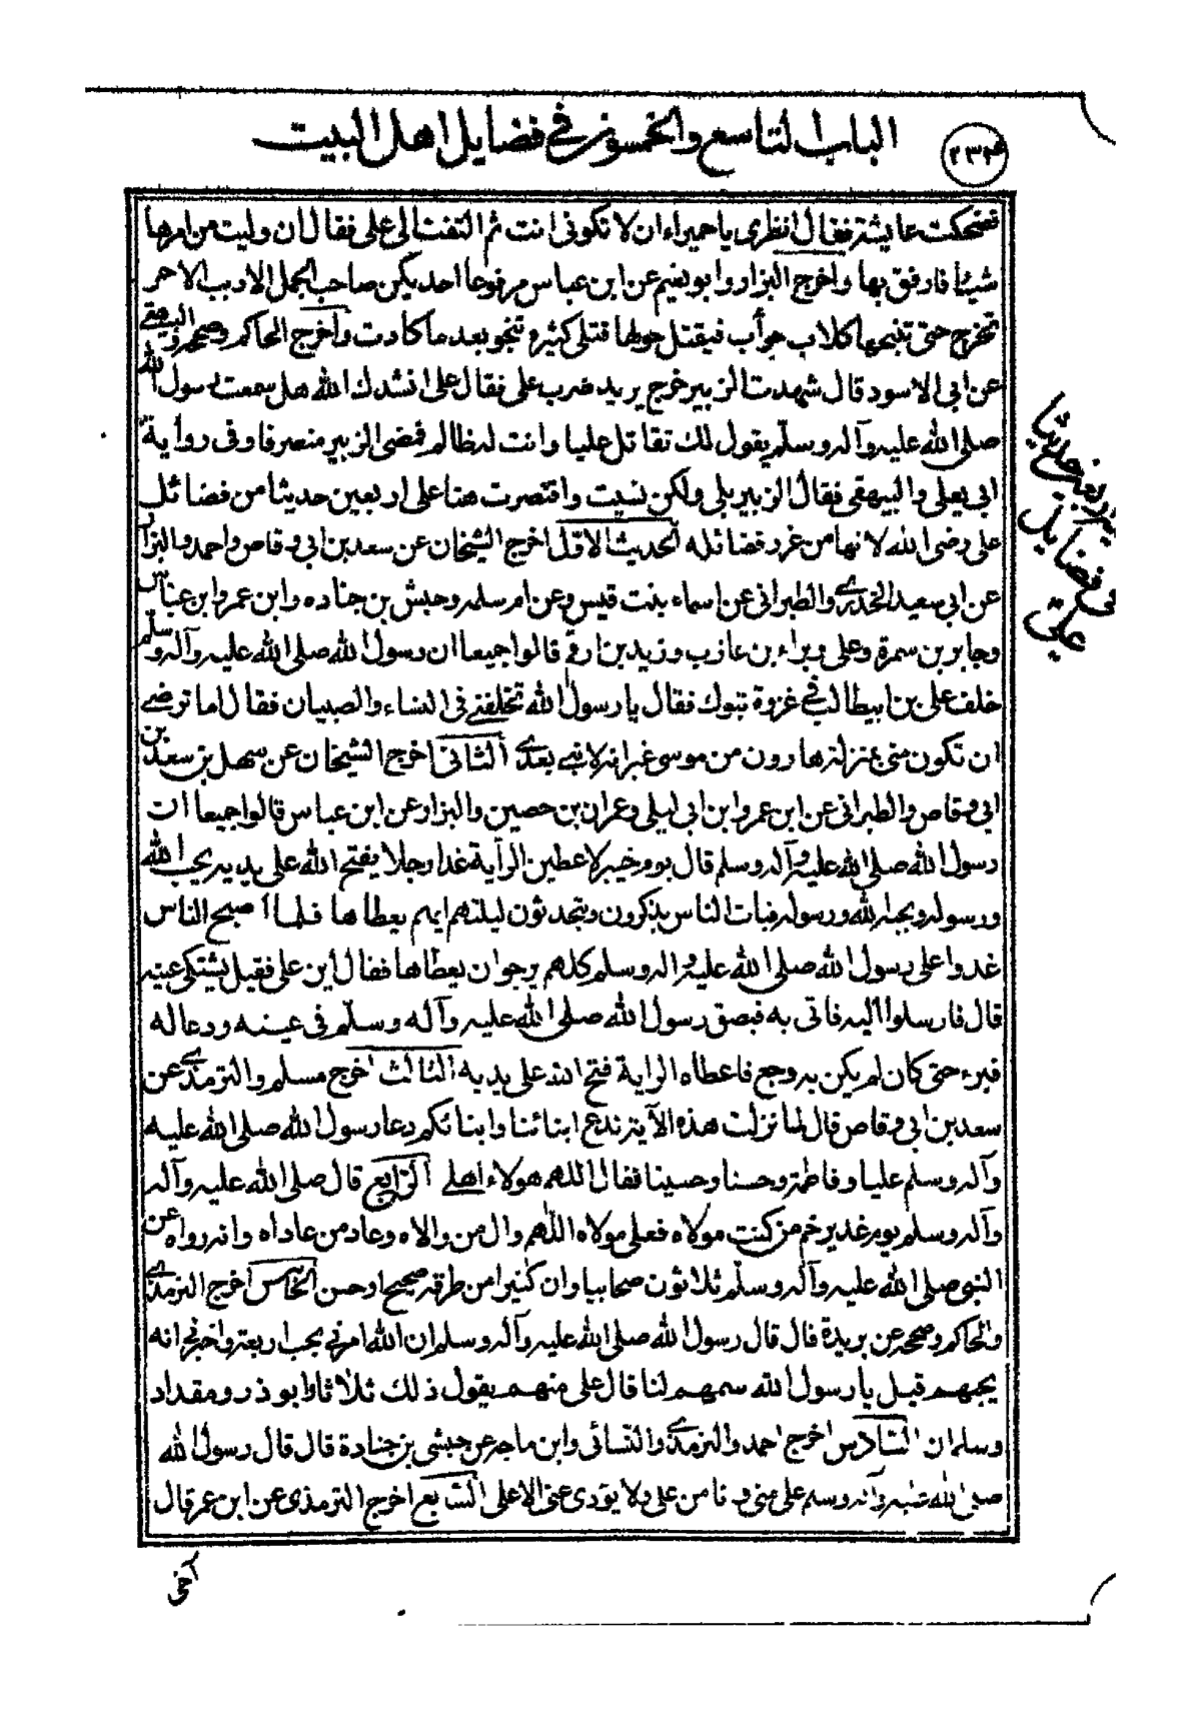 الباب التاسع والخمسون في فضايل اهل البيت
٢٣٤
فضحكت عايشة فقال انظرى يا حميراء ان لا تكونى انت ثم التفت الى على فقال ان وليت من امرها
شيئا فارفق بها واخرج البزار وابو نعيم عن ابن عباس مرفوعا احديكن صاحب الجمل الادبب الاحمر
تخرج حتى تنبحها كلاب حوأب فيقتل حولها قتلى كثيرة وتنجو بعد ما كادت واخرج الحاكم وصححه والبيهقى
عن ابى الاسود قال شهدت الزبير خرج يريد ضرب على فقال على انشدك الله هل سمعت رسول الله
صلى الله عليه وآله وسلم يقول لك تقاتل عليا وانت له ظالم فمضى الزبير منصرفا وفى رواية
ابى يعلى والبيهقى فقال الزبير بلى ولكن نسيت واقتصرت هنا على اربعين حديثا من فضائل
على رضى الله لانها من غرر فضائله الحديث الاول اخرج الشيخان عن سعد بن ابى وقاص واحمد والبزار
عن ابى سعيد الخدرى والطبرانى عن اسماء بنت قيس وعن ام سلمه وحبش بن جناده وابن عمر وابن عباس
وجابر بن سمرة وعلى وبراء بن عازب وزيد بن ارقم قالوا جميعا ان رسول الله صلى الله عليه وآله وسلم
خلف على بن ابيطالب فى غزوة تبوك فقال يا رسول الله تخلفنى فى النساء والصبيان فقال اما ترضى
ان تكون منى بمنزلة هارون من موسى غير انه لا نبى بعدى الثانى اخرج الشيخان عن سهل بن سعد بن
ابى وقاص والطبرانى عن ابن عمر وابن ابى ليلى وعمران بن حصين والبزار عن ابن عباس قالوا جميعا ان
رسول الله صلى الله عليه وآله وسلم قال يوم خيبر لاعطين الراية غدا رجلا يفتح الله على يديه يحب الله
ورسوله ويحبه الله ورسوله فبات الناس يذكرون ويتحدثون ليلتهم ايهم يعطاها فلما اصبح الناس
غدوا على رسول الله صلى الله عليه وآله وسلم كلهم يرجوان يعطاها فقال اين على فقيل يشتكى عينه
قال فارسلوا اليه فاتى به فبصق رسول الله صلى الله عليه وآله وسلم فى عينه ودعا له
فبرء حتى كان لم يكن به وجع فاعطاه الراية فتح الله على يديه الثالث اخرج مسلم والترمذى عن
سعد بن ابى وقاص قال لما نزلت هذه الآية ندع ابنائنا وابنائكم دعا رسول الله صلى الله عليه
وآله وسلم عليا وفاطمة وحسنا وحسينا فقال اللهم هولاء اهلى الرابع قال صلى الله عليه وآله
وآله وسلم يوم غدير خم من كنت مولاه فعلى مولاه اللهم وال من والاه وعاد من عاداه وانه رواه عن
النبى صلى الله عليه وآله وسلم ثلاثون صحابيا وان كثيرا من طرقه صحيح او حسن الخامس اخرج الترمذى
والحاكم وصححه عن بريدة قال قال رسول الله صلى الله عليه وآله وسلم ان الله امرنى بحب اربعة واخبرنى انه
يحبهم قيل يا رسول الله سمهم لنا قال على منهم يقول ذلك ثلاثا وابو ذر ومقداد
وسلمان السادس اخرج احمد والترمذى والنسائى وابن ماجه عن حبشى بن جنادة قال قال رسول الله
صلى الله عليه وآله وسلم على منى وانا من على ولا يؤدى عنى الا على السابع اخرج الترمذى عن ابن عمر قال
آخى
حديثا
فى فضايل
على